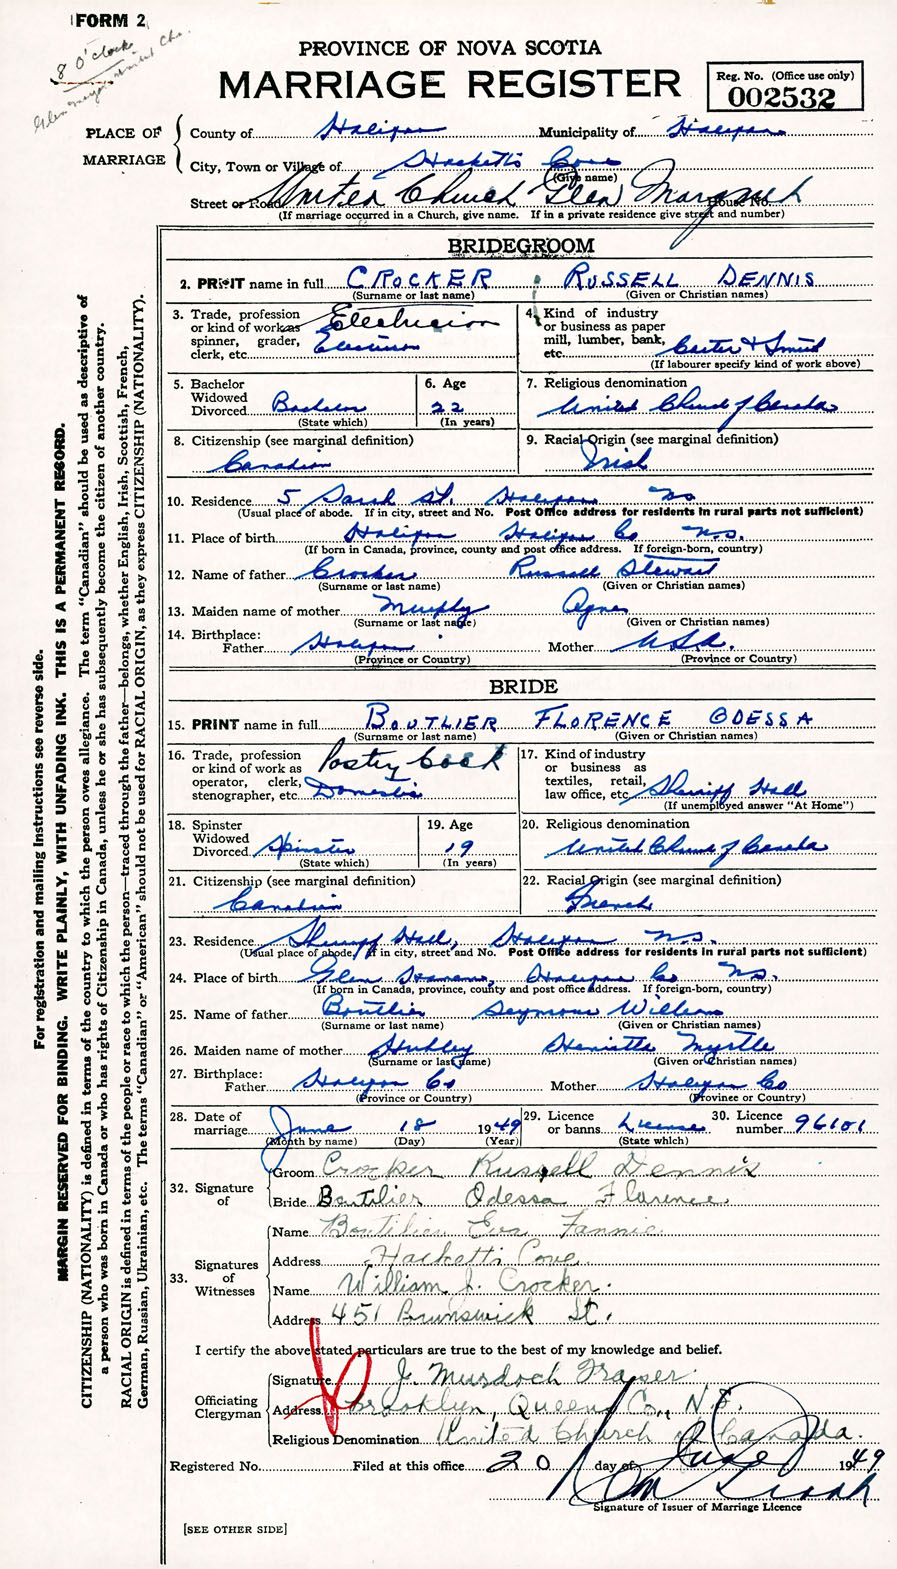 FORM 2
8 O'clock
PROVINCE OF NOVA SCOTIA
MARRIAGE REGISTER
Reg. No. (Office use only)
002532
PLACE OF MARRIAGE
County of Halifax Municipality of Halifax
City, Town or Village of Hacketts Cove
(Give name)
Street or Road United Church Glen Margaret House No.
(If marriage occurred in a Church, give name. If in a private residence give street and number)
BRIDEGROOM
2. PRINT name in full CROCKER RUSSELL DENNIS
(Surname or last name) (Given or Christian names)
3. Trade, profession or kind of work as spinner, grader, clerk, etc. Electrician
4. Kind of industry or business as paper mill, lumber, bank, etc.
(If labourer specify kind of work above)
5. Bachelor Widowed Divorced Bachelor
(State which)
6. Age 22
(In years)
7. Religious denomination United Church of Canada
8. Citizenship (see marginal definition) Canadian
9. Racial Origin (see marginal definition) Irish
10. Residence 5 Sarah St. Halifax NS
(Usual place of abode. If in city, street and No. Post Office address for residents in rural parts not sufficient)
11. Place of birth Halifax Halifax Co N.S.
(If born in Canada, province, county and post office address. If foreign-born, country)
12. Name of father Crocker Russell Stewart
(Surname or last name) (Given or Christian names)
13. Maiden name of mother Murphy Agnes
(Surname or last name) (Given or Christian names)
14. Birthplace:
Father Halifax Mother U.S.A.
(Province or Country) (Province or Country)
BRIDE
15. PRINT name in full BOUTLIER FLORENCE ODESSA
(Surname or last name) (Given or Christian names)
16. Trade, profession or kind of work as operator, clerk, stenographer, etc. Pastry Cook Domestic
17. Kind of industry or business as textiles, retail, law office, etc. Shirriff Hall
(If unemployed answer "At Home")
18. Spinster Widowed Divorced Spinster
(State which)
19. Age 19
(In years)
20. Religious denomination United Church of Canada
21. Citizenship (see marginal definition) Canadian
22. Racial Origin (see marginal definition) French
23. Residence Shirriff Hall, Halifax N.S.
(Usual place of abode. If in city, street and No. Post Office address for residents in rural parts not sufficient)
24. Place of birth Glen Haven, Halifax Co NS.
(If born in Canada, province, county and post office address. If foreign-born, country)
25. Name of father Boutlier Seymour William
(Surname or last name) (Given or Christian names)
26. Maiden name of mother Hubley Henrietta Myrtle
(Surname or last name) (Given or Christian names)
27. Birthplace:
Father Halifax Co Mother Halifax Co
(Province or Country) (Province or Country)
28. Date of marriage June 18 1949
(Month by name) (Day) (Year)
29. Licence or banns License
(State which)
30. Licence number 96101
32. Signature of
Groom Crocker Russell Dennis
Bride Boutilier Odessa Florence
33. Signatures of Witnesses
Name Boutilier Eva Fannie
Address Hacketts Cove
Name William J. Crocker.
Address 451 Brunswick St.
I certify the above stated particulars are true to the best of my knowledge and belief.
Officiating Clergyman
Signature J. Murdoch Fraser
Address Brooklyn, Queens Co., N.S.
Religious Denomination United Church of Canada.
Registered No. Filed at this office 20 day of June 1949
Signature of Issuer of Marriage Licence
[SEE OTHER SIDE]
For registration and mailing instructions see reverse side.
MARGIN RESERVED FOR BINDING. WRITE PLAINLY, WITH UNFADING INK. THIS IS A PERMANENT RECORD.
CITIZENSHIP (NATIONALITY) is defined in terms of the country to which the person owes allegiance. The term "Canadian" should be used as descriptive of
a person who was born in Canada or who has rights of Citizenship in Canada, unless he or she has subsequently become the citizen of another country.
RACIAL ORIGIN is defined in terms of the people or race to which the person—traced through the father—belongs, whether English, Irish, Scottish, French,
German, Russian, Ukrainian, etc. The terms "Canadian" or "American" should not be used for RACIAL ORIGIN, as they express CITIZENSHIP (NATIONALITY).